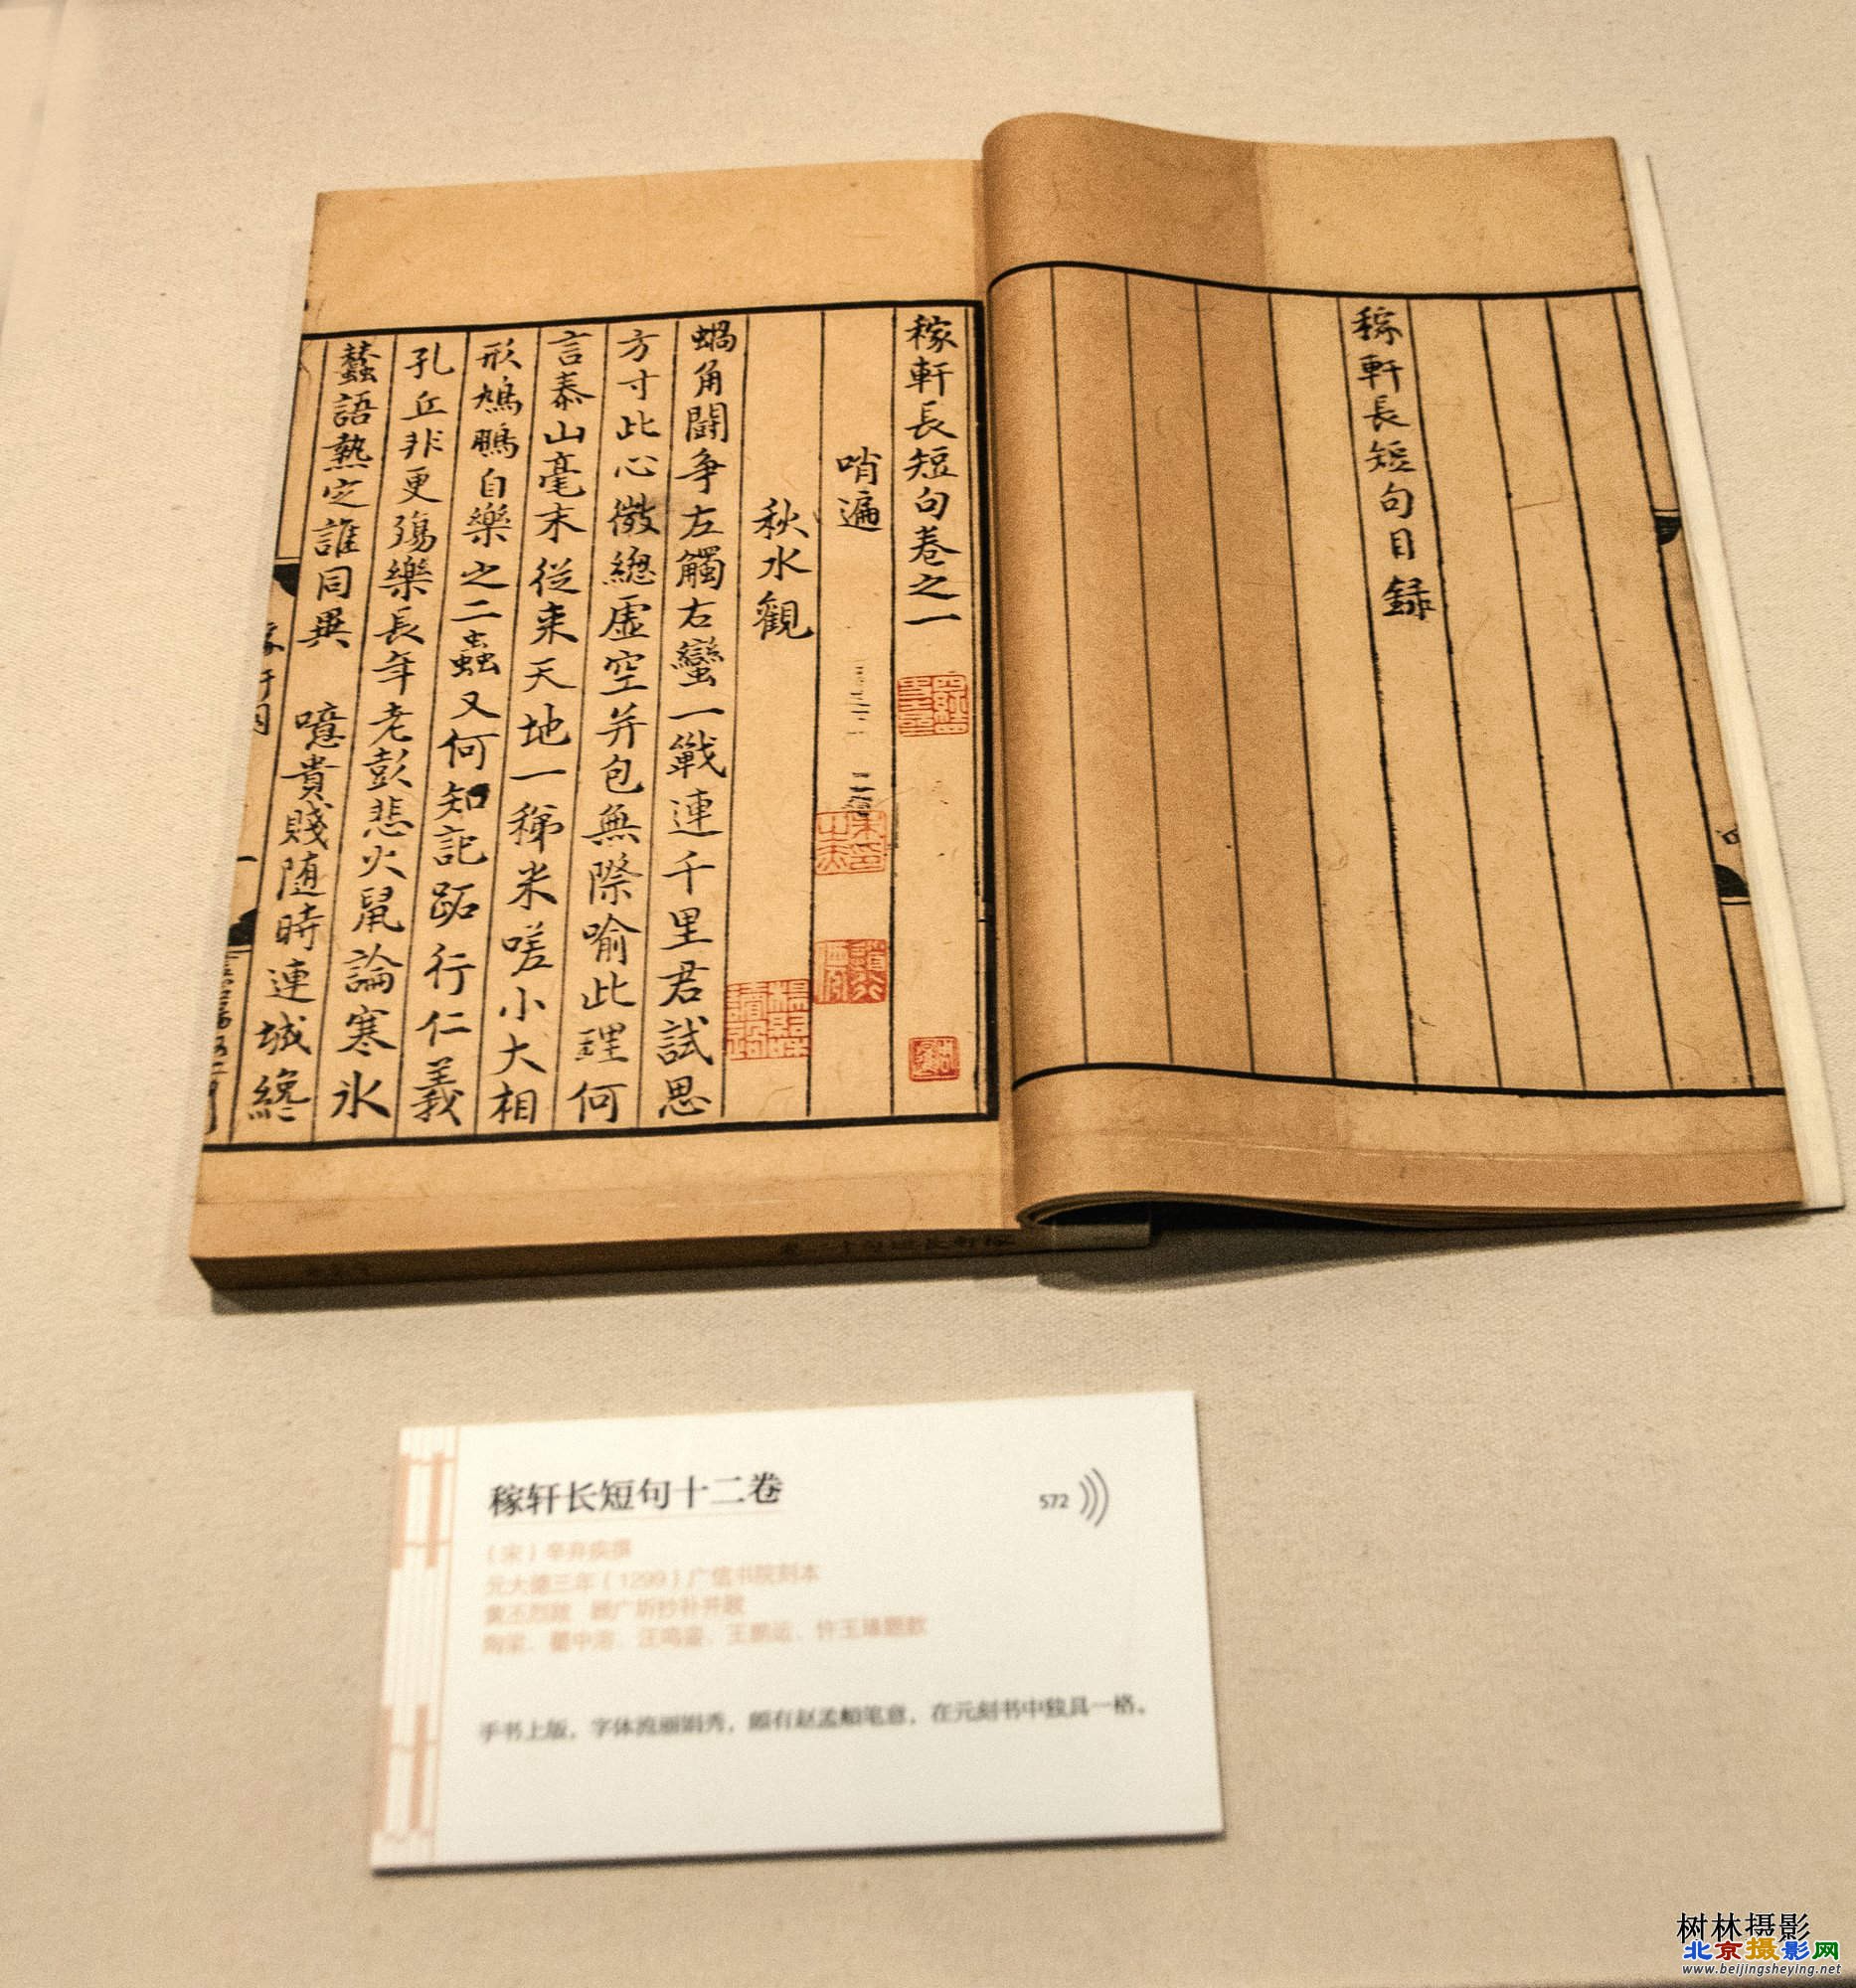 稼軒長短句目録
稼軒長短句卷之一
哨遍
秋水觀
蝸角鬪爭左觸右蠻一戰連千里君試思
方寸此心微總虛空并包無際喻此理何
言泰山毫末從来天地一稊米嗟小大相
形鳩鵬自樂之二蟲又何知記跖行仁義
孔丘非更殤樂長年老彭悲火鼠論寒氷
蠶語熱定誰同異 噫貴賤随時連城纔
一
稼轩长短句十二卷
572
（宋）辛弃疾撰
元大德三年（1299）广信书院刻本
黄丕烈跋 顾广圻抄补并跋
陶梁、瞿中溶、汪鸣銮、王鹏运、许玉瑑题款
手书上版，字体流丽娟秀，颇有赵孟頫笔意，在元刻书中独具一格。
树林摄影
北京摄影网
www.beijingsheying.net